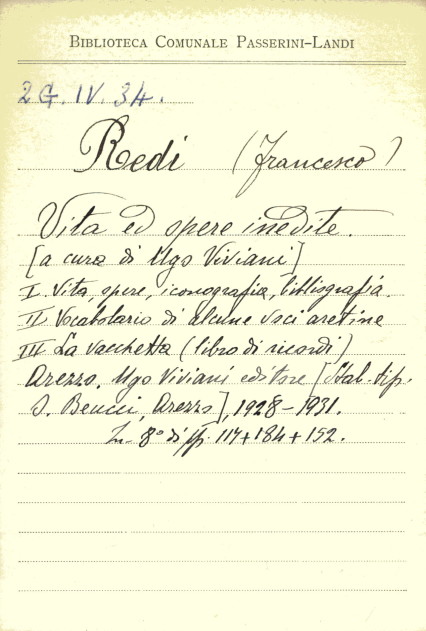 BIBLIOTECA COMUNALE PASSERINI-LANDI
2G.IV.34.
Redi (Francesco)
Vita ed opere inedite.
[a cura di Ugo Viviani]
I Vita, opere, iconografia, bibliografia.
II Vocabolario di alcune voci aretine
III La vacchetta (libro di ricordi)
Arezzo, Ugo Viviani editore [Stab. tip.
J. Beucci, Arezzo], 1928-1931.
In-8° di pp. 114+184+152.